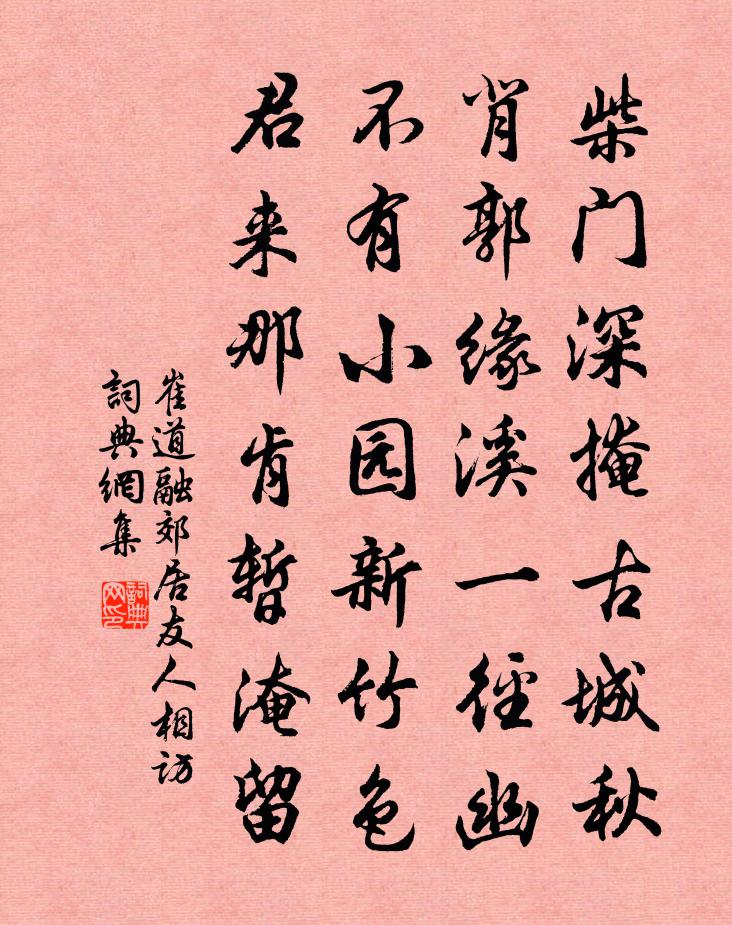 柴门深掩古城秋
背郭缘溪一徑幽
不有小园新竹色
君来那肯暫淹留
崔道融郊居友人相访
詞典網集
詞典网印